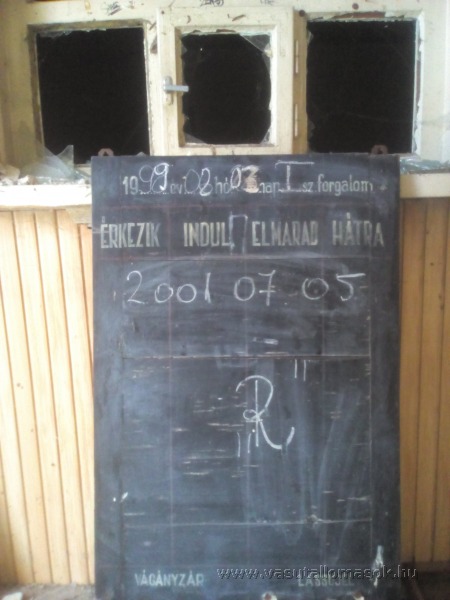 1999 évi 08 hó 03 nap I sz forgalom
ÉRKEZIK INDUL ELMARAD HÁTRA
2001 07 05
R
VÁGÁNYZÁR
www.vasutallomasok.hu